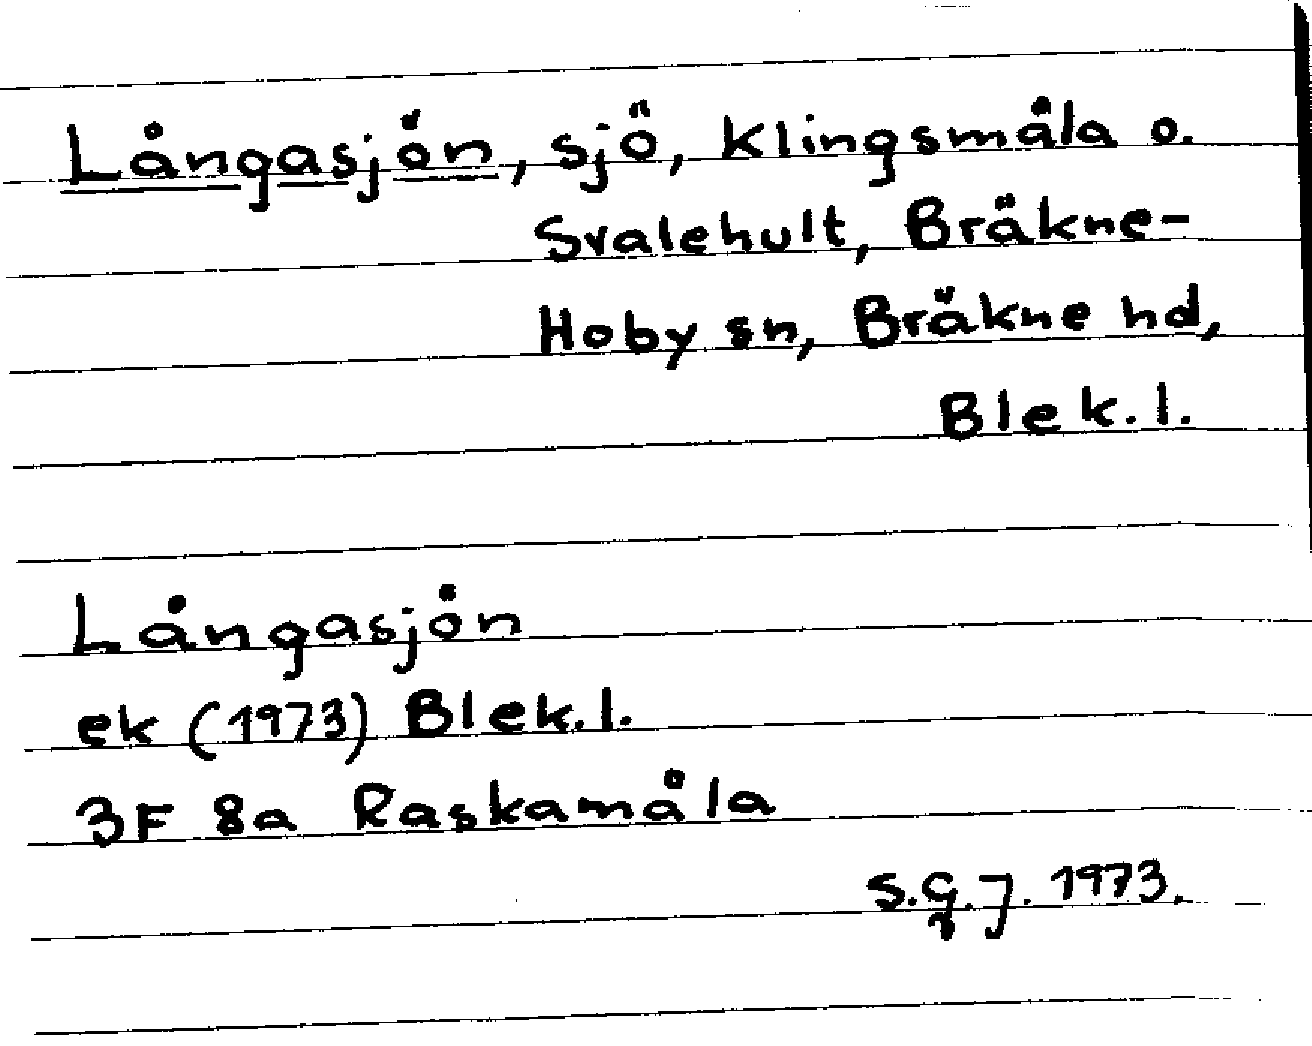 Långasjön, sjö, Klingsmåla o.
Svalehult, Bräkne-
Hoby sn, Bräkne hd,
Blek. l.
Långasjön
ek (1973) Blek. l.
3F 8a Raskamåla
S.G.J. 1973.